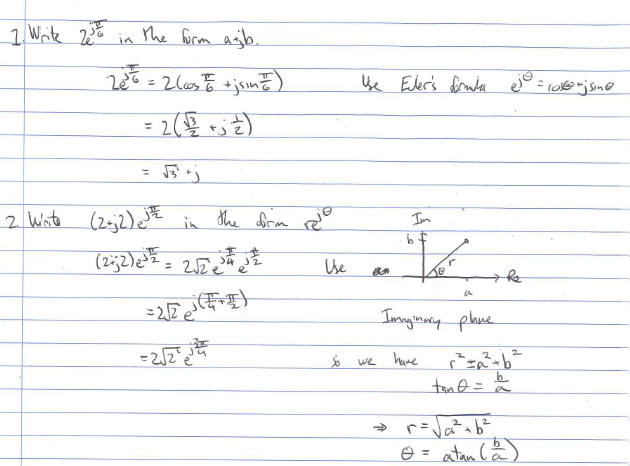 1. Write 2e^{jπ/6} in the form a+jb.
2e^{jπ/6} = 2(cos π/6 + jsin π/6) Use Euler's formula e^{jθ} = cosθ+jsinθ
= 2(√3/2 + j 1/2)
= √3 + j
2. Write (2+j2)e^{jπ/2} in the form re^{jθ}
Im
b
(2+j2)e^{jπ/2} = 2√2 e^{jπ/4} e^{jπ/2} Use r θ Re
a
= 2√2 e^{j(π/4+π/2)}
Imaginary plane
= 2√2 e^{j3π/4} so we have r² = a²+b²
tanθ = b/a
⇒ r = √(a²+b²)
θ = atan(b/a)